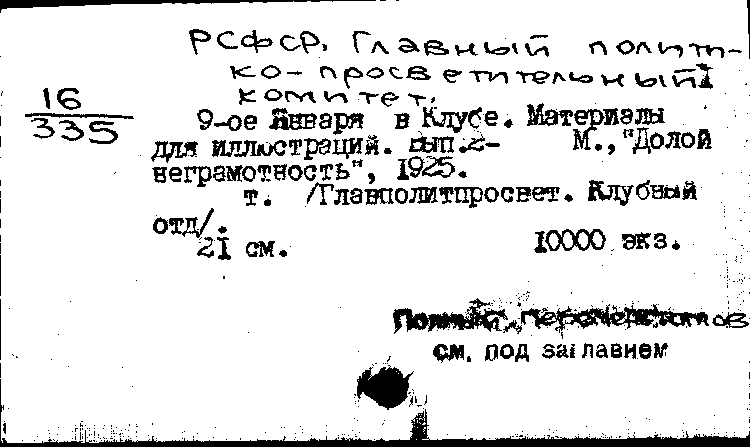 РСФСР. Главный полити-
ко-просветительный
комитет.
16
335
9-ое Января в Клубе. Материалы
для иллюстраций. вып.2- М.,"Долой
неграмотность", 1925.
т. /Главполитпросвет. Клубный
отд/.
21 см. 10000 экз.
Полный
см. под заглавием